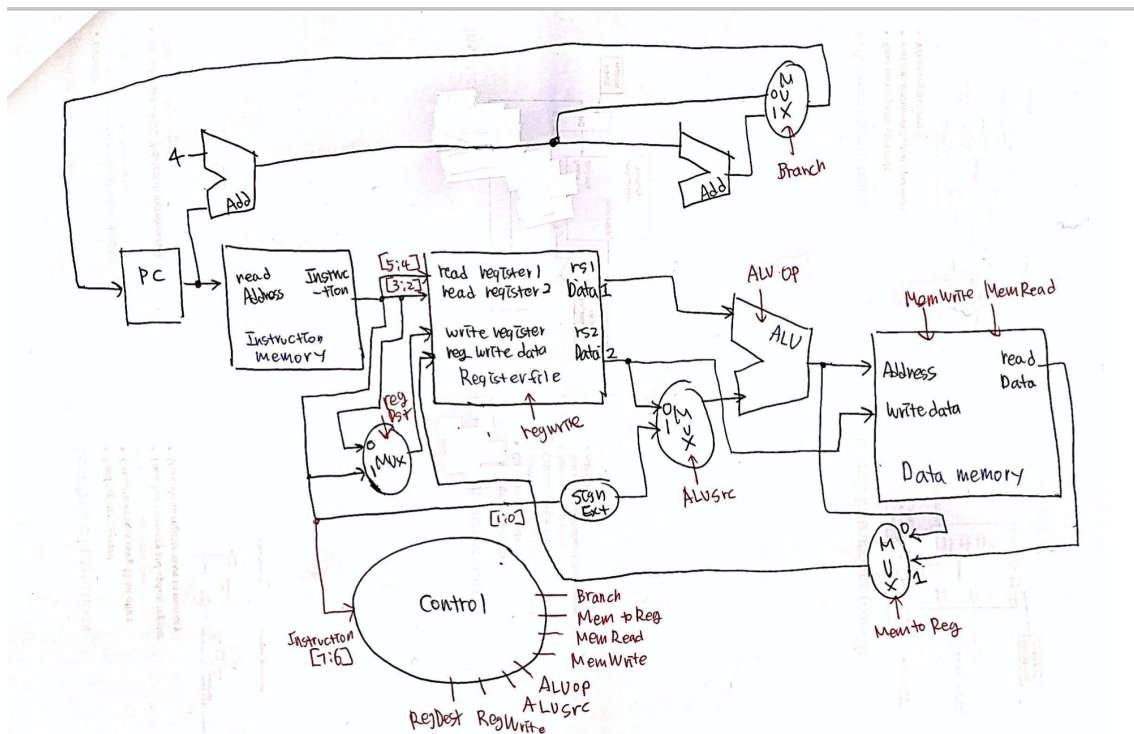 M
U
X
0
1
Branch
4
Add
Add
PC
read
Address
Instruc
-tion
Instruction
memory
[5:4]
[3:2]
read register1
read register2
write register
reg write data
Registerfile
rs1
Data 1
rs2
Data 2
regwrite
reg
Dst
0
1
MUX
ALU OP
ALU
0
1
M
U
X
ALUSrc
Sign
Ext
[1:0]
MemWrite
MemRead
Address
write data
read
Data
Data memory
0
1
M
U
X
Mem to Reg
Control
Instruction
[7:6]
Branch
Mem to Reg
MemRead
MemWrite
ALUOP
ALUSrc
RegWrite
RegDest